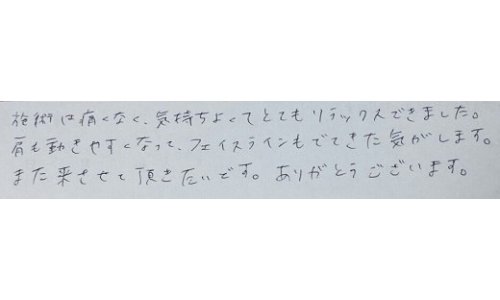 施術は痛くなく、気持ちよくてとてもリラックスできました。
肩も動きやすくなって、フェイスラインもでてきた気がします。
また来させて頂きたいです。ありがとうございます。